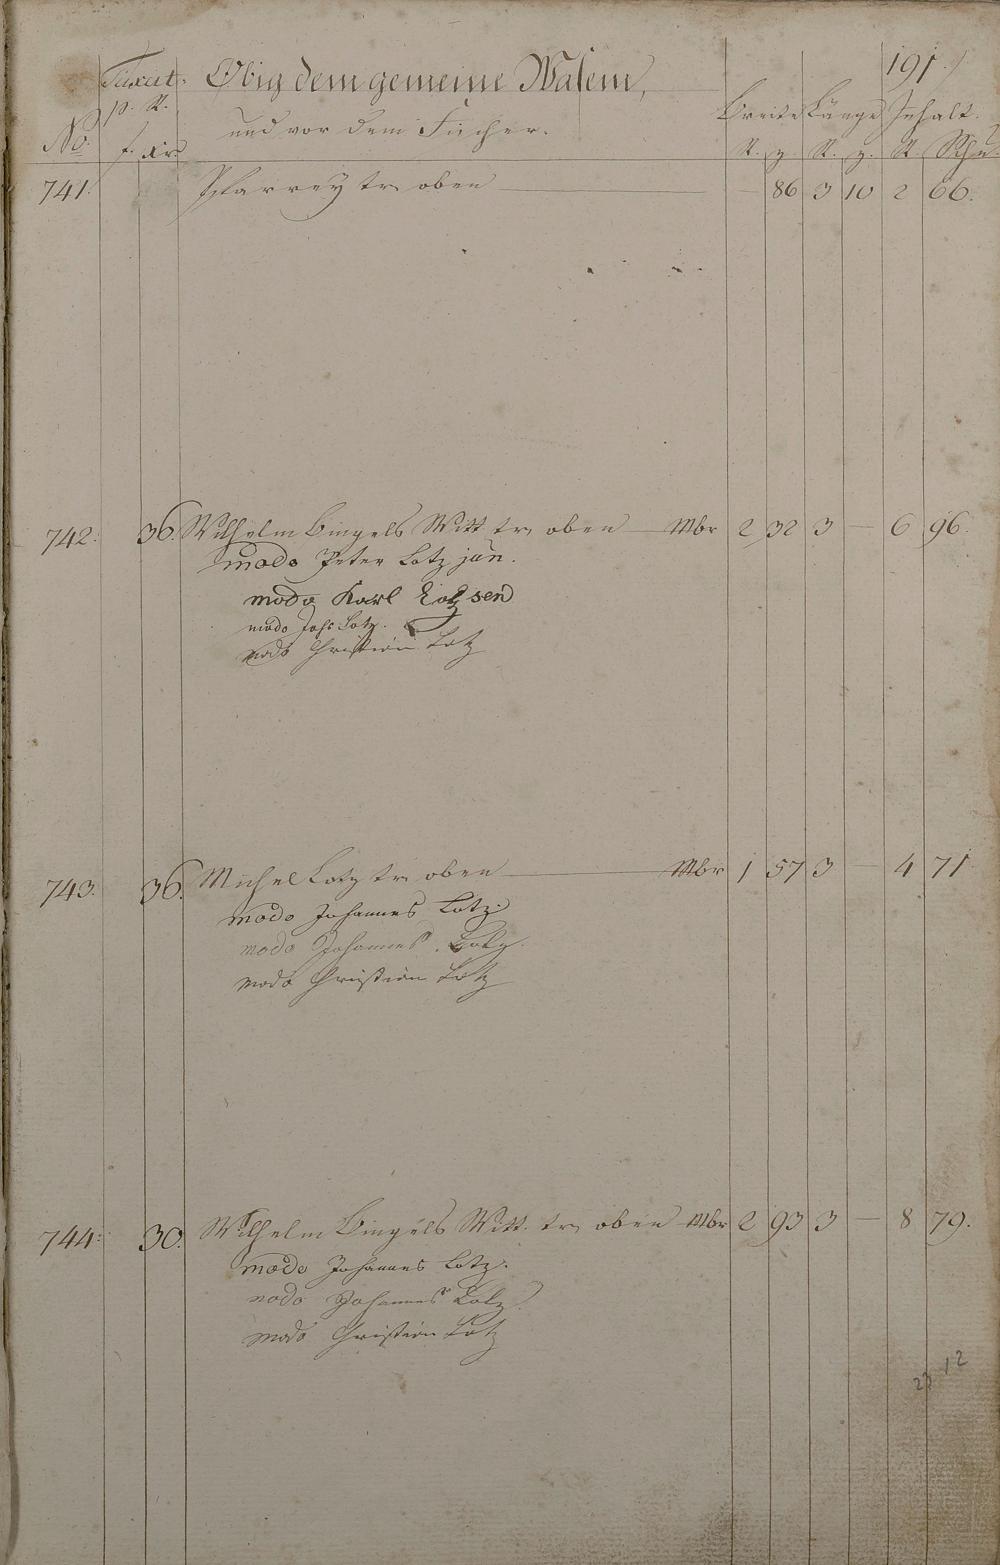 191.
Taxat. Obig dem gemeine Walem,
p. R. und vor dem Fücher. Breite Länge Inhalt.
No. f. xr. R. z. R. z. R Schu
741. Pfarrey tr oben — 86 3 10 2 66.
742. 36. Wilhelm Bingels Witt tr oben Mbr 2 32 3 — 6 96.
modo Peter Lotz jun.
modo Karl Lotz sen
modo Johs Lotz.
modo Christian Lotz
743. 36. Michel Lotz tr oben Mbr 1 57 3 — 4 71
modo Johannes Lotz.
modo Johannes Lotz.
modo Christian Lotz
744. 30. Wilhelm Bingels Witt. tr oben Mbr 2 93 3 — 8 79.
modo Johannes Lotz.
modo Johannes Lotz.
modo Christian Lotz
23 12